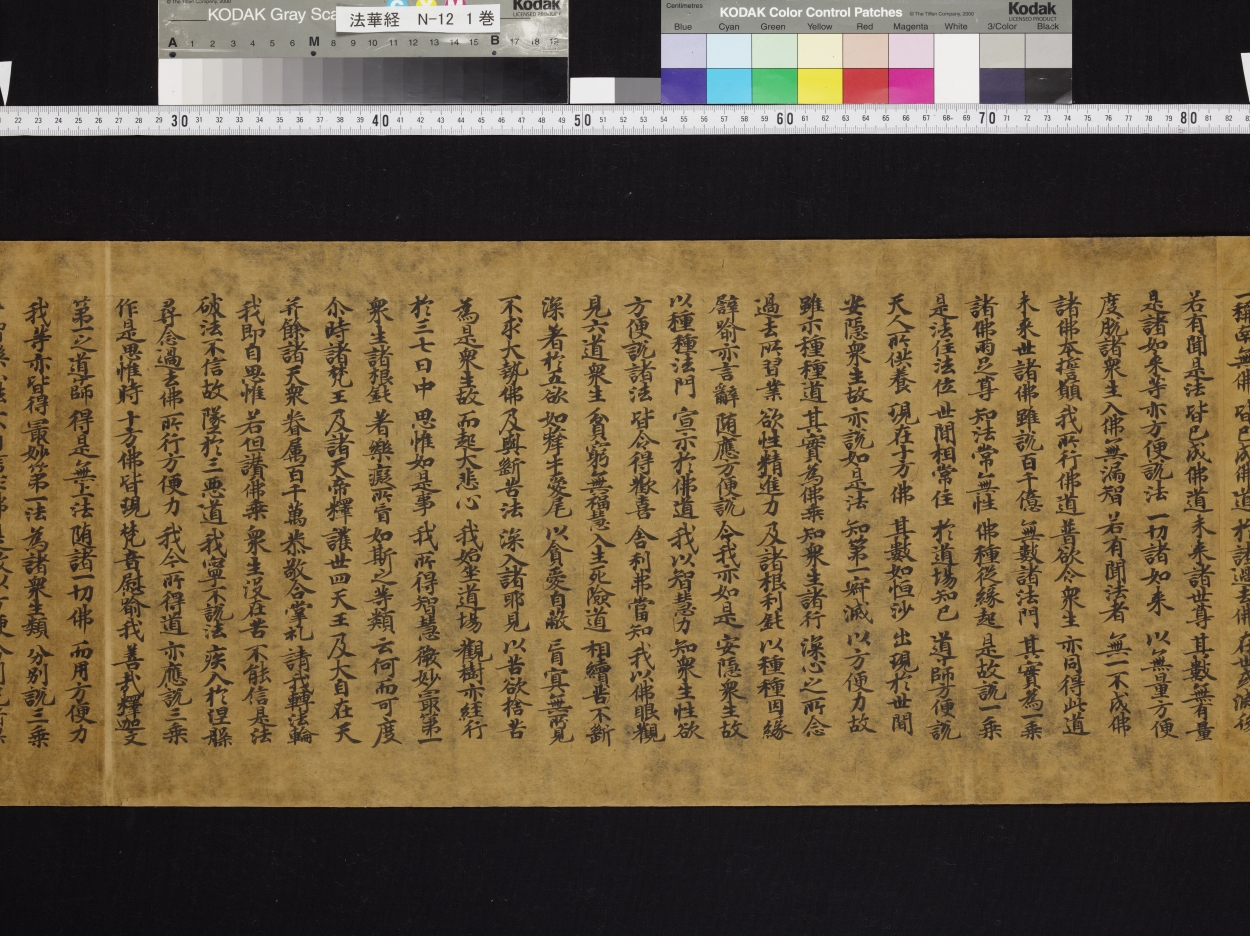 KODAK Gray Sca
© The Tiffen Company, 2000
Kodak
LICENSED PRODUCT
法華経 N-12 1巻
A 1 2 3 4 5 6 M 8 9 10 11 12 13 14 15 B 17 18 19
Centimetres
KODAK Color Control Patches
© The Tiffen Company, 2000
Kodak
LICENSED PRODUCT
Blue Cyan Green Yellow Red Magenta White 3/Color Black
22 23 24 25 26 27 28 29 30 31 32 33 34 35 36 37 38 39 40 41 42 43 44 45 46 47 48 49 50 51 52 53 54 55 56 57 58 59 60 61 62 63 64 65 66 67 68 69 70 71 72 73 74 75 76 77 78 79 80 81 82
一稱南無佛 皆已成佛道 於諸過去佛 在世或滅後
若有聞是法 皆已成佛道 未来諸世尊 其數無有量
是諸如来等 亦方便說法 一切諸如来 以無量方便
度脫諸衆生 入佛無漏智 若有聞法者 無一不成佛
諸佛本誓願 我所行佛道 普欲令衆生 亦同得此道
未来世諸佛 雖說百千億 無數諸法門 其實為一乗
諸佛兩足尊 知法常無性 佛種從緣起 是故說一乗
是法住法位 世間相常住 於道場知已 導師方便說
天人所供養 現在十方佛 其數如恒沙 出現於世間
安隠衆生故 亦說如是法 知第一寂滅 以方便力故
雖示種種道 其實為佛乗 知衆生諸行 深心之所念
過去所習業 欲性精進力 及諸根利鈍 以種種因緣
譬喻亦言辭 随應方便說 今我亦如是 安隠衆生故
以種種法門 宣示於佛道 我以智慧力 知衆生性欲
方便說諸法 皆令得歡喜 舍利弗當知 我以佛眼觀
見六道衆生 貧窮無福慧 入生死險道 相續苦不斷
深著於五欲 如犛牛愛尾 以貪愛自蔽 盲冥無所見
不求大勢佛 及與斷苦法 深入諸耶見 以苦欲捨苦
為是衆生故 而起大悲心 我始坐道場 觀樹亦經行
於三七日中 思惟如是事 我所得智慧 微妙最第一
衆生諸根鈍 著樂癡所盲 如斯之等類 云何而可度
尒時諸梵王 及諸天帝釋 護世四天王 及大自在天
并餘諸天衆 眷屬百千萬 恭敬合掌礼 請我轉法輪
我即自思惟 若但讃佛乗 衆生没在苦 不能信是法
破法不信故 墜於三悪道 我寧不說法 疾入於涅槃
尋念過去佛 所行方便力 我今所得道 亦應說三乗
作是思惟時 十方佛皆現 梵音慰喻我 善哉釋迦文
第一之道師 得是無上法 随諸一切佛 而用方便力
我等亦皆得 最妙第一法 為諸衆生類 分別說三乗